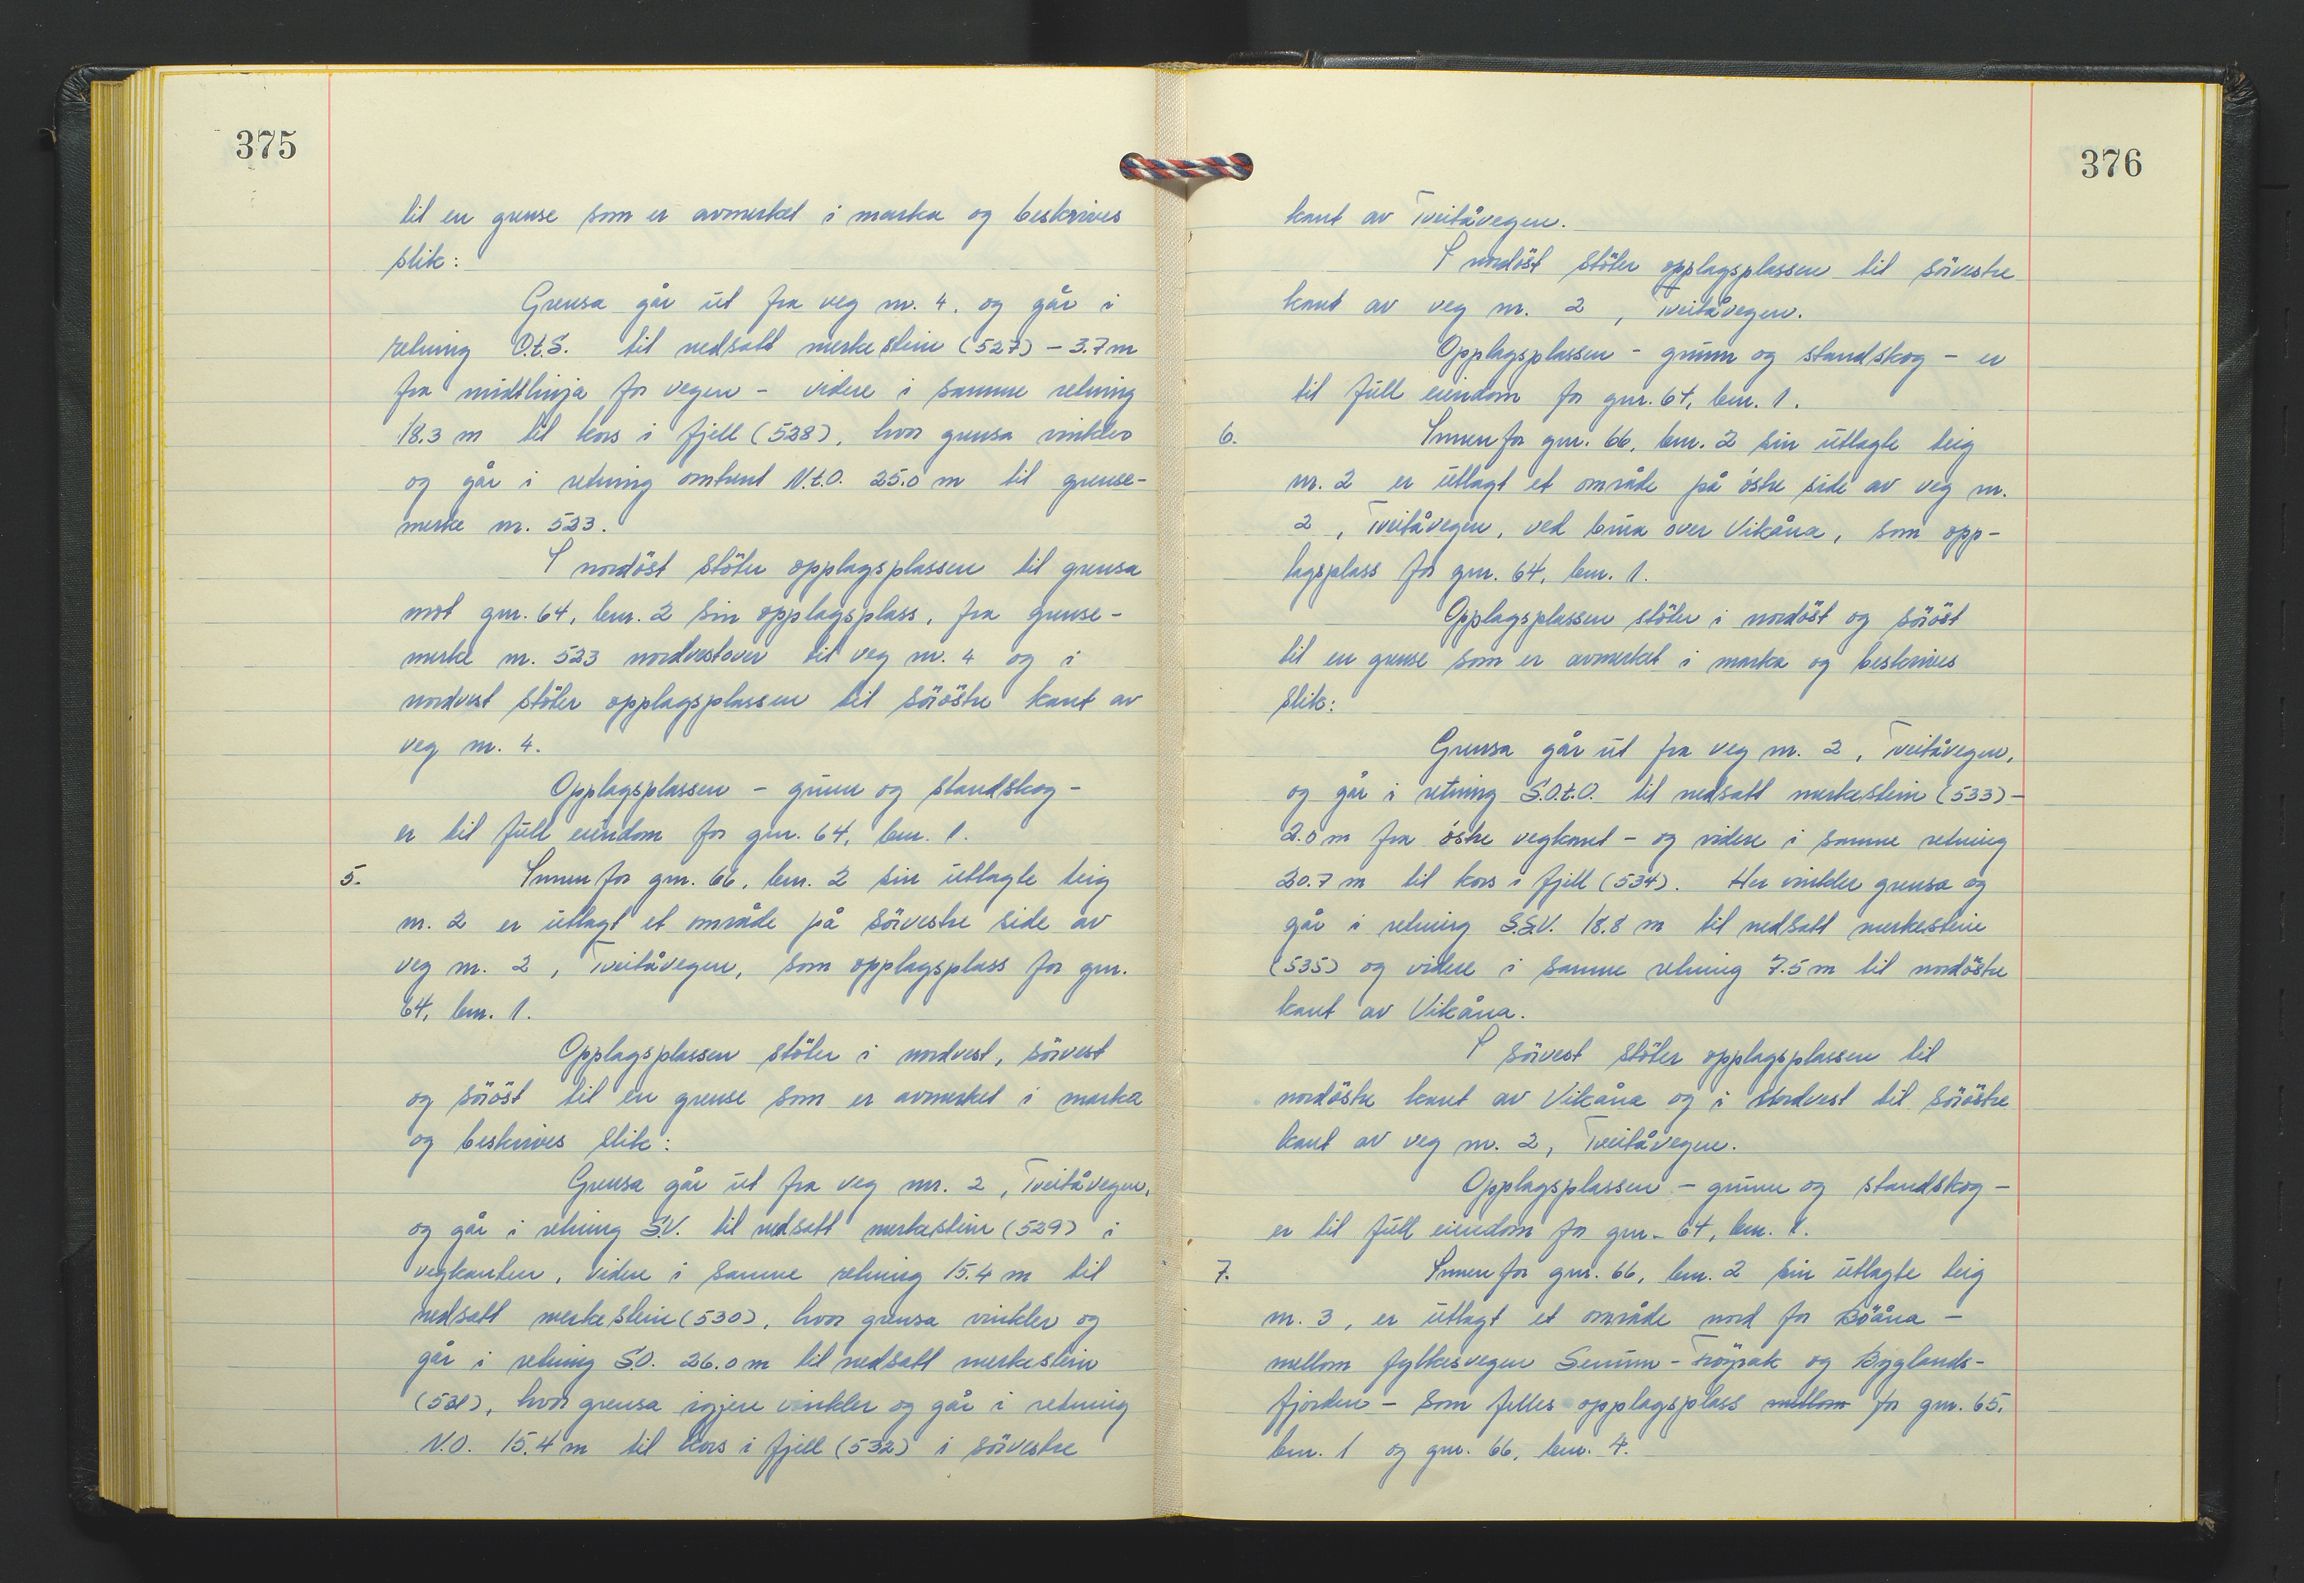 375
til en grense som er avmerket i marka og beskrives
slik:
Grensa går ut fra veg nr. 4. og går i
retning O.t.S. til nedsatt merkestein (527) – 3.7 m
fra midtlinja for vegen – videre i samme retning
18.3 m til kors i fjell (528), hvor grensa vinkler
og går i retning omtrent N.t.O. 25.0 m til grense-
merke nr. 523.
I nordöst stöter opplagsplassen til grensa
mot gnr. 64, bnr. 2 sin opplagsplass, fra grense-
merke nr. 523 nordvestover til veg nr. 4 og i
nordvest stöter opplagsplassen til söröstre kant av
veg nr. 4.
Opplagsplassen – grunn og standskog –
er til full eiendom for gnr. 64, bnr. 1.
5. Innenfor gnr. 66, bnr. 2 sin utlagte teig
nr. 2 er utlagt et område på sörvestre side av
veg nr. 2, Tveitåvegen, som opplagsplass for gnr.
64, bnr. 1.
Opplagsplassen stöter i nordvest, sörvest
og söröst til en grense som er avmerket i marka
og beskrives slik:
Grensa går ut fra veg nr. 2, Tveitåvegen,
og går i retning S.V. til nedsatt merkestein (529) i
vegkanten, videre i samme retning 15.4 m til
nedsatt merkestein (530), hvor grensa vinkler og
går i retning S.O. 26.0 m til nedsatt merkestein
(531), hvor grensa igjen vinkler og går i retning
N.O. 15.4 m til kors i fjell (532) i sörvestre
376
kant av Tveitåvegen.
I nordöst stöter opplagsplassen til sörvestre
kant av veg nr. 2, Tveitåvegen.
Opplagsplassen – grunn og standskog – er
til full eiendom for gnr. 64, bnr. 1.
6. Innenfor gnr. 66, bnr. 2 sin utlagte teig
nr. 2 er utlagt et område på östre side av veg nr.
2, Tveitåvegen, ved brua over Vikåna, som opp-
lagsplass for gnr. 64, bnr. 1.
Opplagsplassen stöter i nordöst og söröst
til en grense som er avmerket i marka og beskrives
slik:
Grensa går ut fra veg nr. 2, Tveitåvegen,
og går i retning S.O.t.O. til nedsatt merkestein (533) –
2.0 m fra östre vegkant – og videre i samme retning
20.7 m til kors i fjell (534). Her vinkler grensa og
går i retning S.S.V. 18.8 m til nedsatt merkestein
(535) og videre i samme retning 7.5 m til nordöstre
kant av Vikåna.
I sörvest stöter opplagsplassen til
nordöstre kant av Vikåna og i nordvest til söröstre
kant av veg nr. 2, Tveitåvegen.
Opplagsplassen – grunn og standskog –
er til full eiendom for gnr. 64, bnr. 1.
7. Innenfor gnr. 66, bnr. 2 sin utlagte teig
nr. 3, er utlagt et område nord for Böåna –
mellom fylkesvegen Senum – Fröyrak og Byglands-
fjorden – som felles opplagsplass mellom for gnr. 65,
bnr. 1 og gnr. 66, bnr. 4.